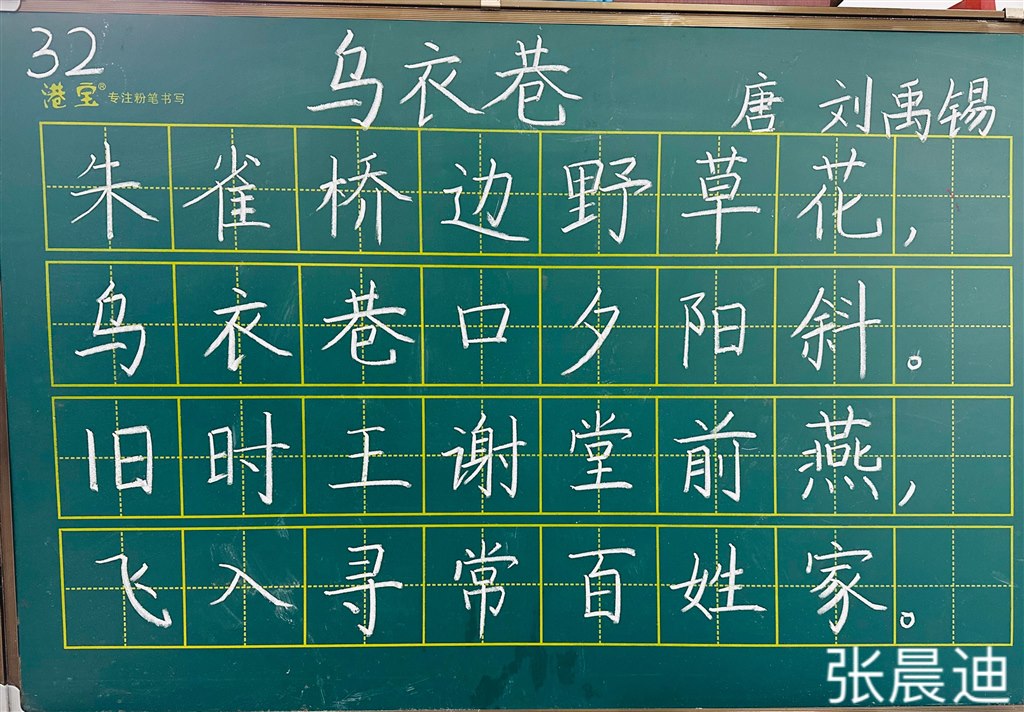 32
港宝® 专注粉笔书写
乌衣巷
唐 刘禹锡
朱雀桥边野草花，
乌衣巷口夕阳斜。
旧时王谢堂前燕，
飞入寻常百姓家。
张晨迪